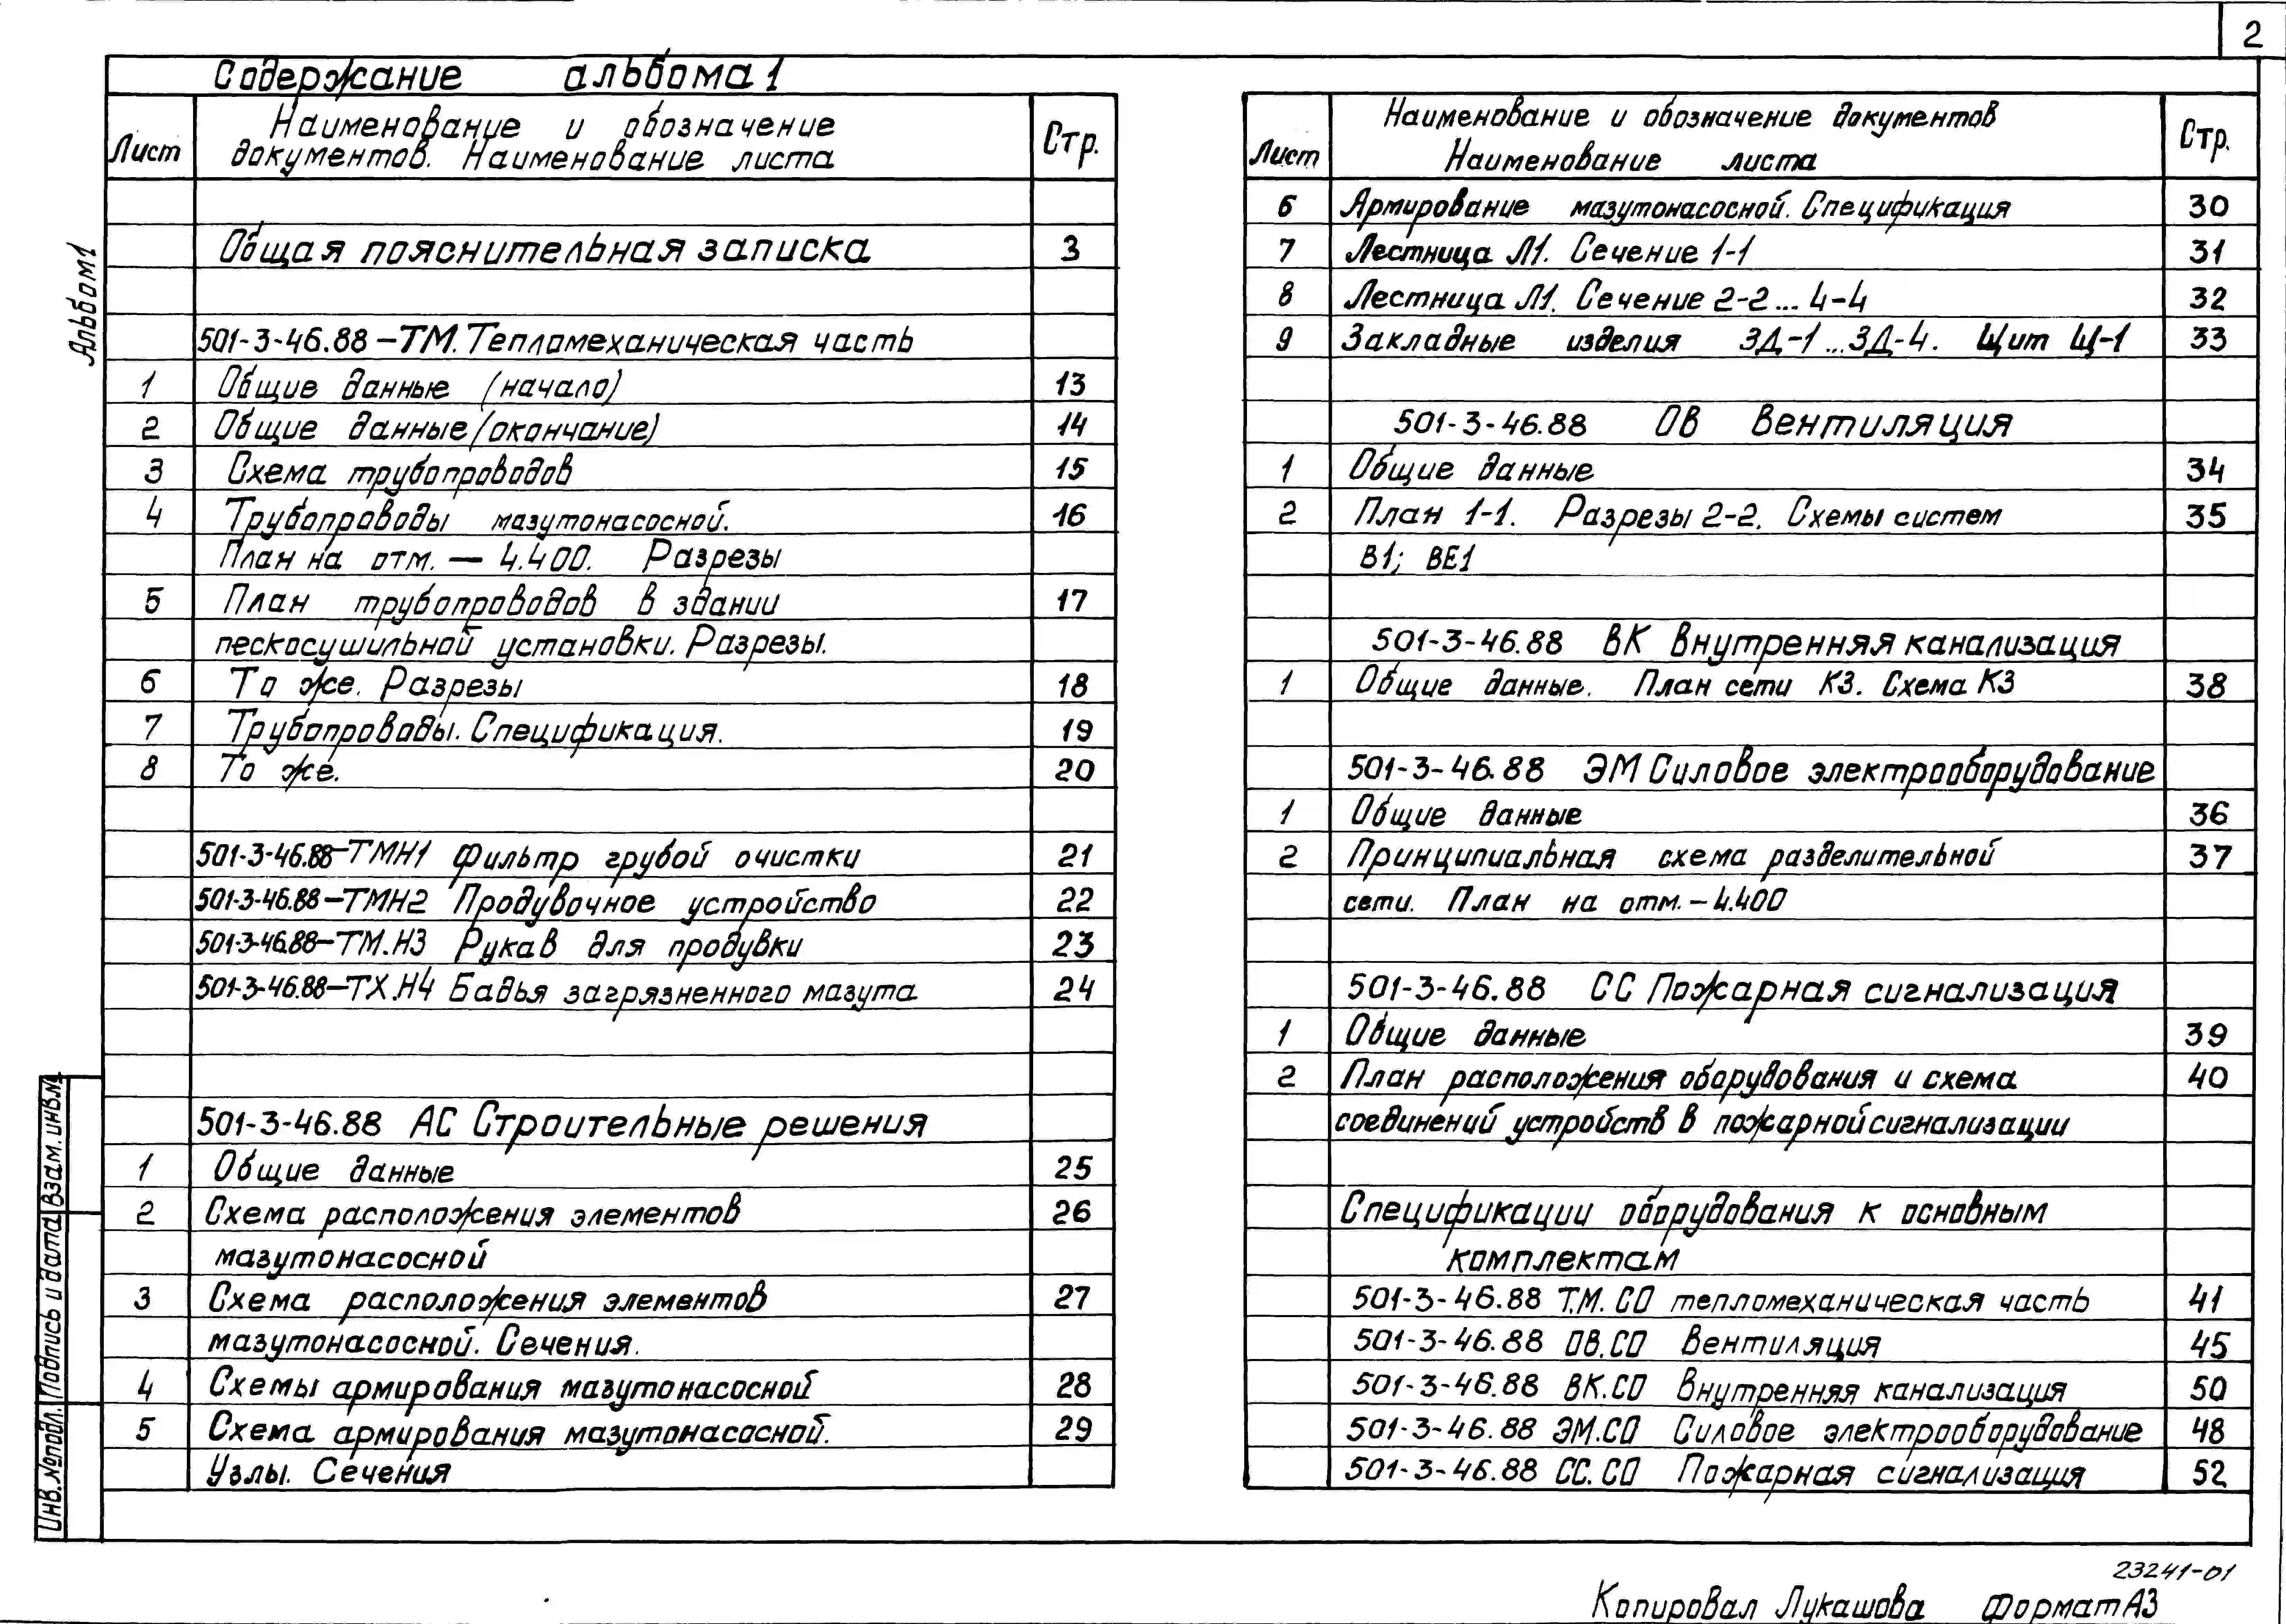 2
Содержание альбома 1
Лист
Наименование и обозначение
документов. Наименование листа
Стр.
Общая пояснительная записка 3
501-3-46.88-ТМ. Тепломеханическая часть
1 Общие данные (начало) 13
2 Общие данные (окончание) 14
3 Схема трубопроводов 15
4 Трубопроводы мазутонасосной. 16
План на отм. — 4.400. Разрезы
5 План трубопроводов в здании 17
пескосушильной установки. Разрезы.
6 То же. Разрезы 18
7 Трубопроводы. Спецификация. 19
8 То же. 20
501-3-46.88-ТМН1 Фильтр грубой очистки 21
501-3-46.88-ТМН2 Продувочное устройство 22
501-3-46.88-ТМ.Н3 Рукав для продувки 23
501-3-46.88-ТХ.Н4 Бадья загрязненного мазута 24
501-3-46.88 АС Строительные решения
1 Общие данные 25
2 Схема расположения элементов 26
мазутонасосной
3 Схема расположения элементов 27
мазутонасосной. Сечения.
4 Схемы армирования мазутонасосной 28
5 Схема армирования мазутонасосной. 29
Узлы. Сечения
Лист
Наименование и обозначение документов
Наименование листа
Стр.
6 Армирование мазутонасосной. Спецификация 30
7 Лестница Л1. Сечение 1-1 31
8 Лестница Л1. Сечение 2-2... 4-4 32
9 Закладные изделия ЗД-1...ЗД-4. Щит Щ-1 33
501-3-46.88 ОВ Вентиляция
1 Общие данные 34
2 План 1-1. Разрезы 2-2. Схемы систем 35
В1; ВЕ1
501-3-46.88 ВК Внутренняя канализация
1 Общие данные. План сети К3. Схема К3 38
501-3-46.88 ЭМ Силовое электрооборудование
1 Общие данные 36
2 Принципиальная схема разделительной 37
сети. План на отм. - 4.400
501-3-46.88 СС Пожарная сигнализация
1 Общие данные 39
2 План расположения оборудования и схема 40
соединений устройств в пожарной сигнализации
Спецификации оборудования к основным
комплектам
501-3-46.88 Т.М.СО тепломеханическая часть 41
501-3-46.88 ОВ.СО Вентиляция 45
501-3-46.88 ВК.СО Внутренняя канализация 50
501-3-46.88 ЭМ.СО Силовое электрооборудование 48
501-3-46.88 СС.СО Пожарная сигнализация 52
Альбом 1
Взам. инв.№
Подпись и дата
Инв.№ подл.
23241-01
Копировал Лукашова Формат А3